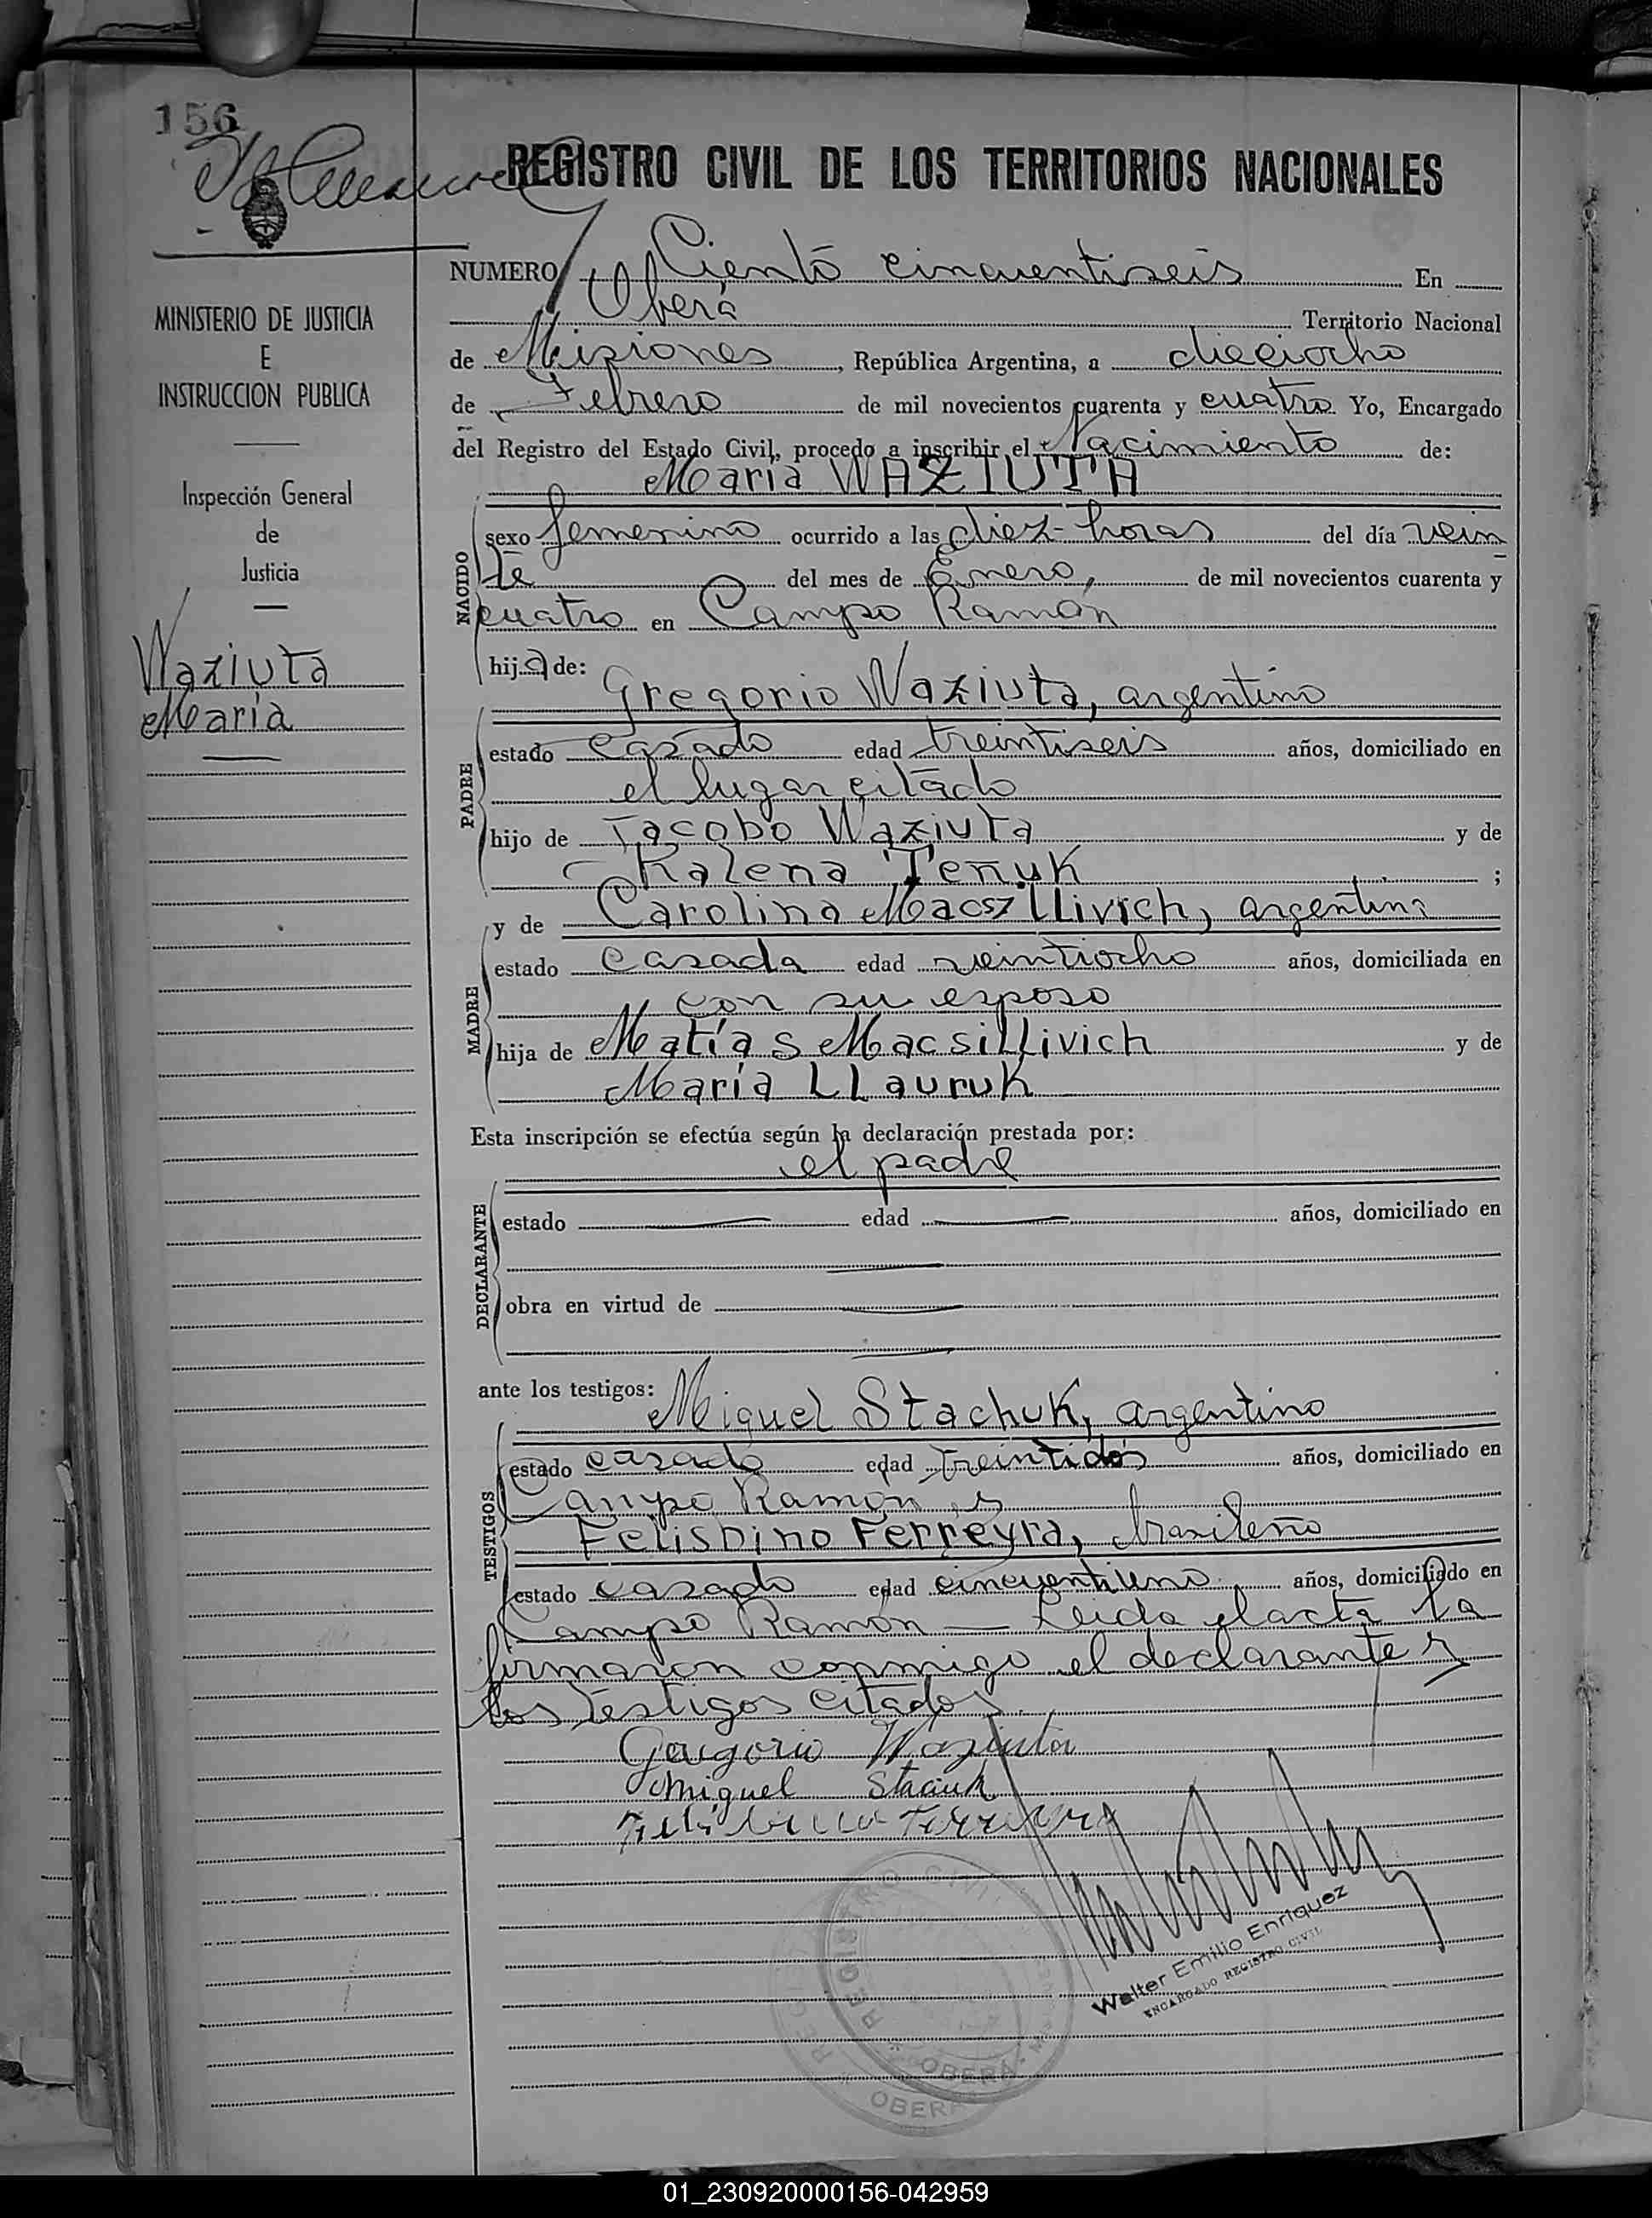 156
REGISTRO CIVIL DE LOS TERRITORIOS NACIONALES
MINISTERIO DE JUSTICIA
E
INSTRUCCION PUBLICA
Inspección General
de
Justicia
Waziuta
María
NUMERO Ciento cincuentiseis En
Oberá Territorio Nacional
de Misiones, República Argentina, a dieciocho
de Febrero de mil novecientos cuarenta y cuatro Yo, Encargado
del Registro del Estado Civil, procedo a inscribir el Nacimiento de:
María WAZIUTA
NACIDO
sexo femenino ocurrido a las diez horas del día vein
te del mes de Enero, de mil novecientos cuarenta y
cuatro en Campo Ramón
hija de:
Gregorio Waziuta, argentino
PADRE
estado casado edad treintiseis años, domiciliado en
el lugar citado
hijo de Jacobo Waziuta y de
Kalena Teñuk ;
y de Carolina Macszllivich, argentina
MADRE
estado casada edad veintiocho años, domiciliada en
con su esposo
hija de Matías Macsillivich y de
María LLauruk
Esta inscripción se efectúa según la declaración prestada por:
el padre
DECLARANTE
estado edad años, domiciliado en
obra en virtud de
ante los testigos:
Miguel Stachuk, argentino
TESTIGOS
estado casado edad treintidós años, domiciliado en
Campo Ramón y
Felisbino Ferreyra, brasileño
estado casado edad cincuentiuno años, domiciliado en
Campo Ramón — Leida el acta la
firmaron conmigo el declarante y
los testigos citados.
Gregorio Waziuta
Miguel Stachuk
Felisbino Ferreyra
Walter Emilio Enriquez
ENCARGADO REGISTRO CIVIL
REGISTRO CIVIL
OBERA
OBERA
01_230920000156-042959